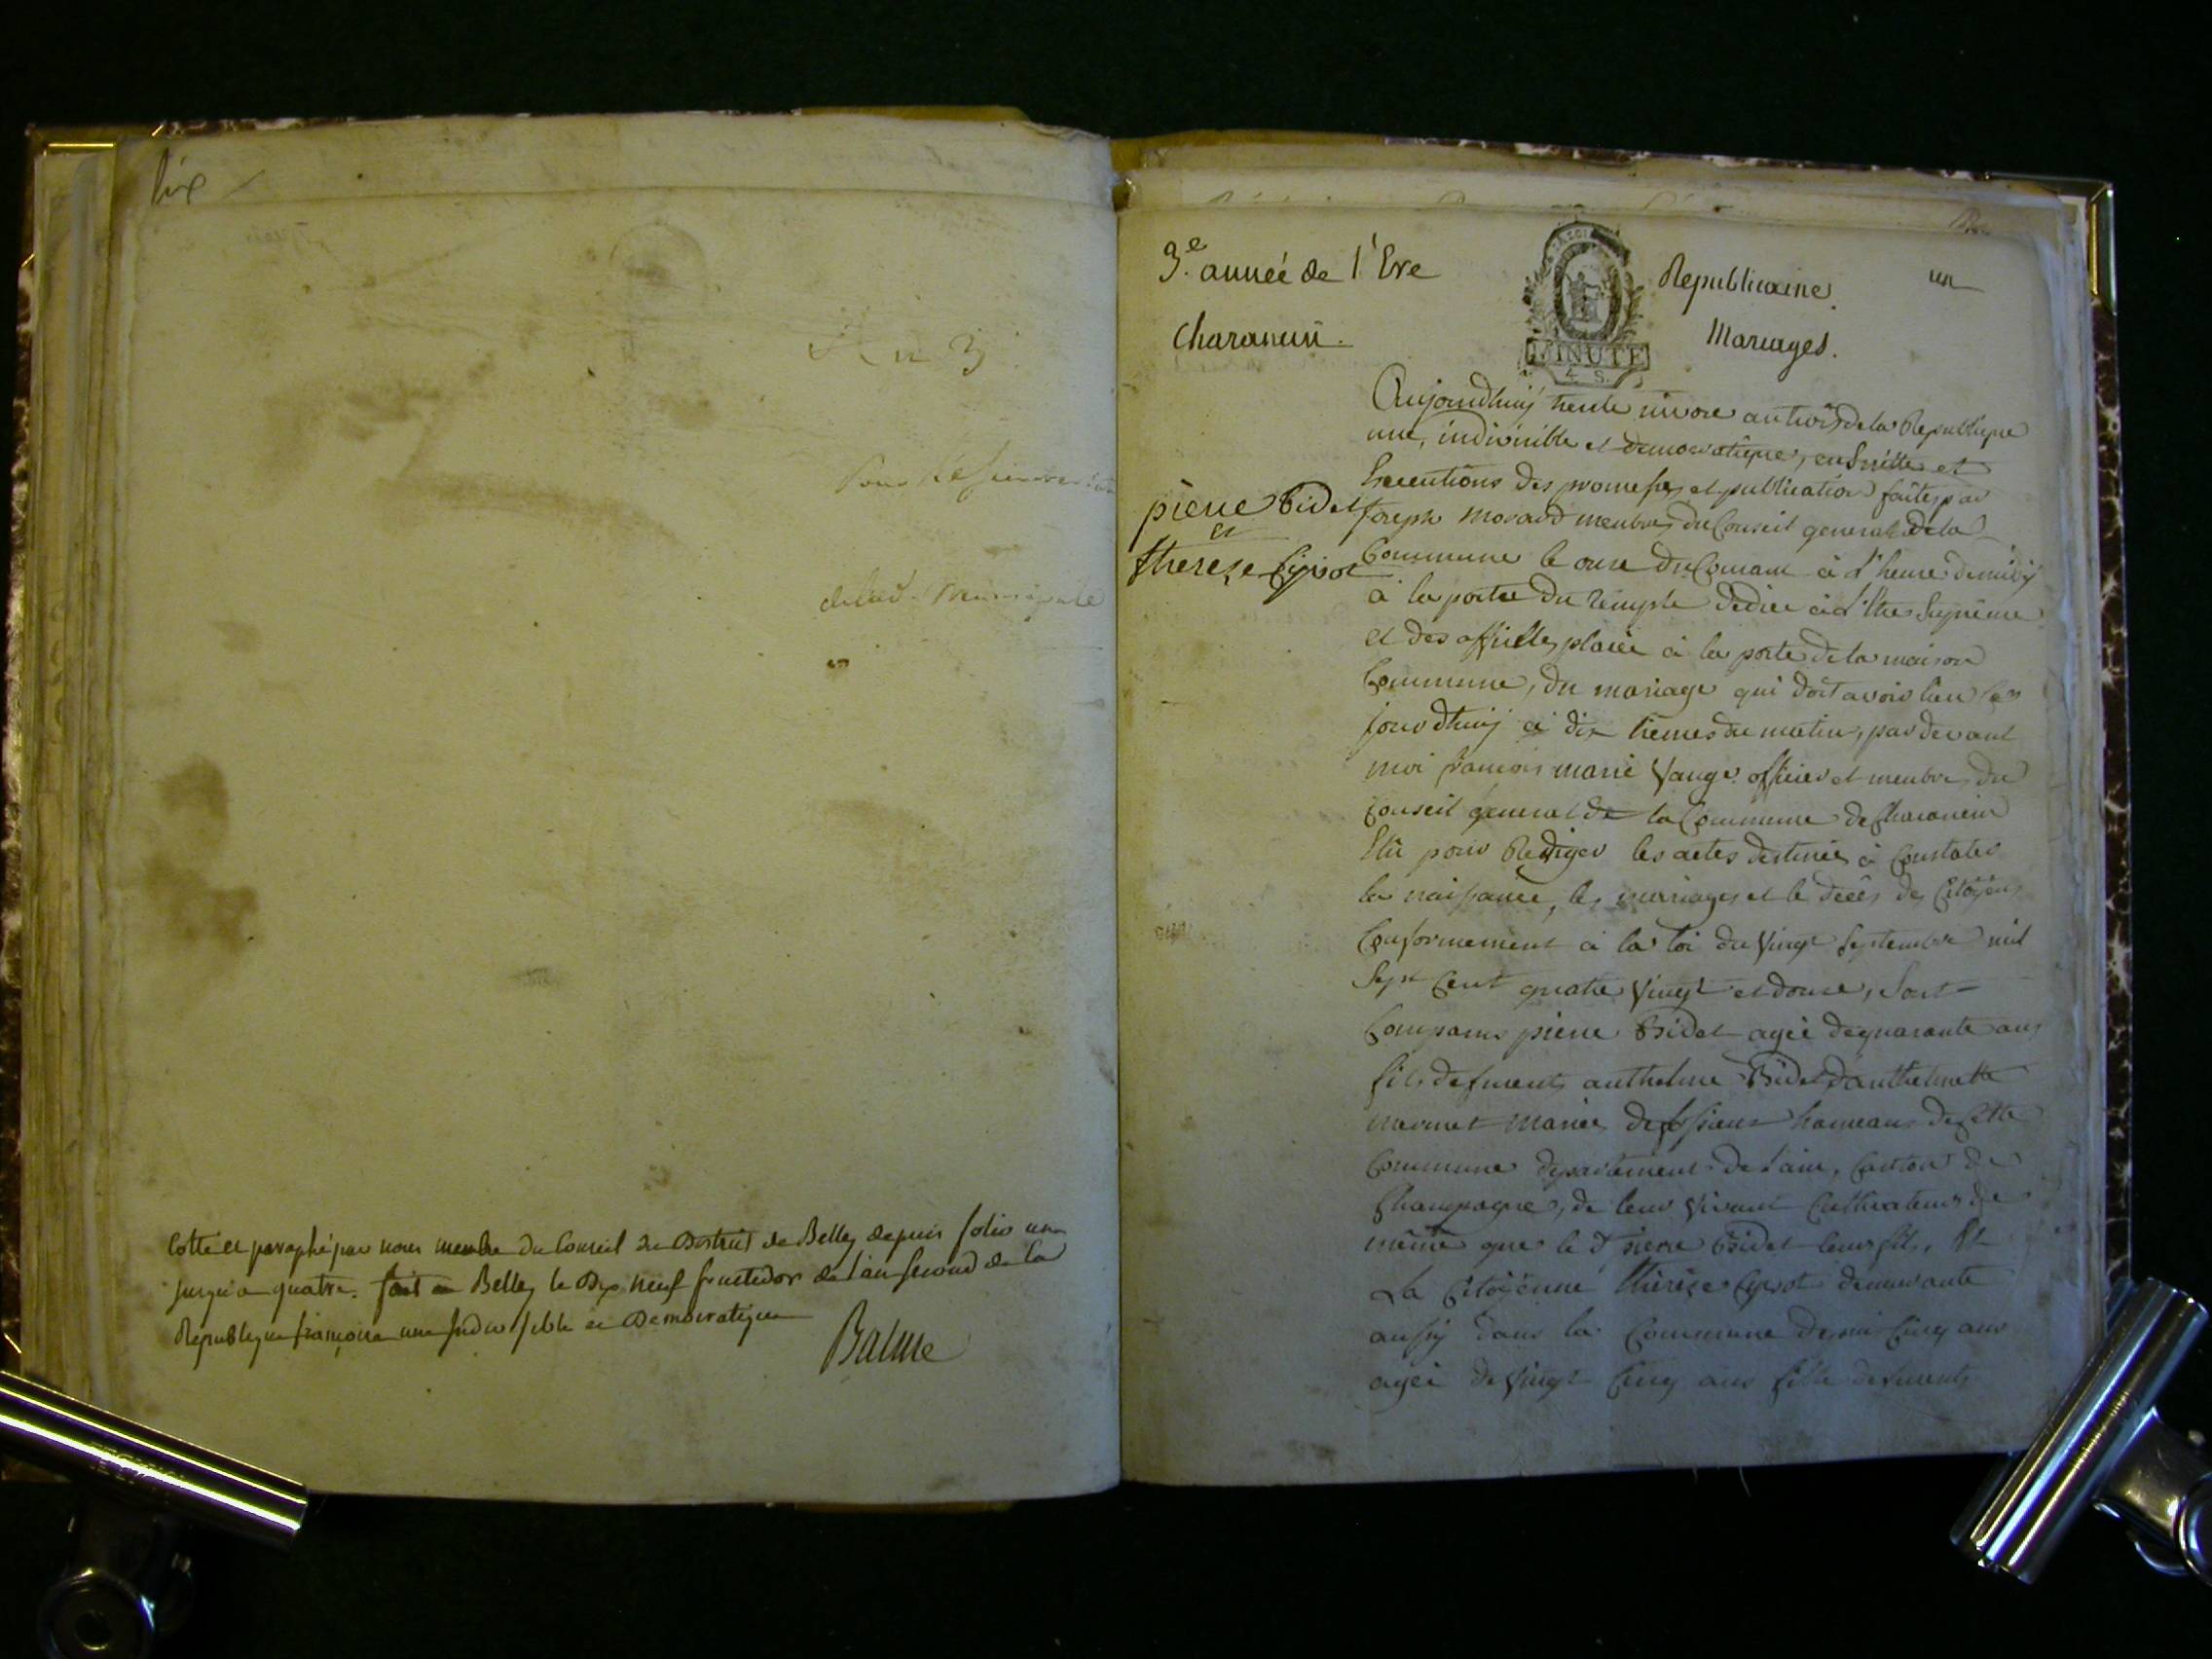 dix
An 3
Pour
municipale
Cotté et paraphé par nous membre du Conseil du District de Belley depuis folio un
jusqu'a quatre. fait a Belley le Dix neuf fructidor de l'an second de la
Republique françoise une indivisible et Democratique
Balme
3.e année de l'Ere Republicaine. un
Charancin. Mariages.
MINUTE
4 S.
pierre Bidet
et
therese Cyvot
Aujourdhuij trente nivose an trois de la Republique
une, indivisible et democratique, en suitte et
Executions des promesses et publication faites par
joseph morand membre du Conseil general de la
Commune le onze du Courant à l'heure de midÿ
à la porte du temple dediee à l'Etre Supreme
et des affiches placée à la porte de la maison
Commune, du mariage qui doit avoir lieu ce
jourdhuij à dix heures du matin, par devant
moi francois marie officier et membre du
Conseil general de la Commune de Charancin
Elu pour Rediger les actes destinés à Constater
la naissance, les mariages et le décès des Citoÿens
Conformement à la loi du Vingt Septembre mil
Sept Cent quatre Vingt et douze, Sont
Comparus pierre Bidet agée de quarante ans
fils de funts anthelme Bidet danthelmette
mermet mariés hameau de Cette
Commune departement de l'ain, Canton de
Champagne, de leur Vivant Cultivateurs de
même que le d. pierre Bidet leur fils, Et
La Citoÿenne thérèse Cyvot demeurante
aussÿ dans la Commune depui Cinq ans
agée de Vingt Cinq ans fille de funts